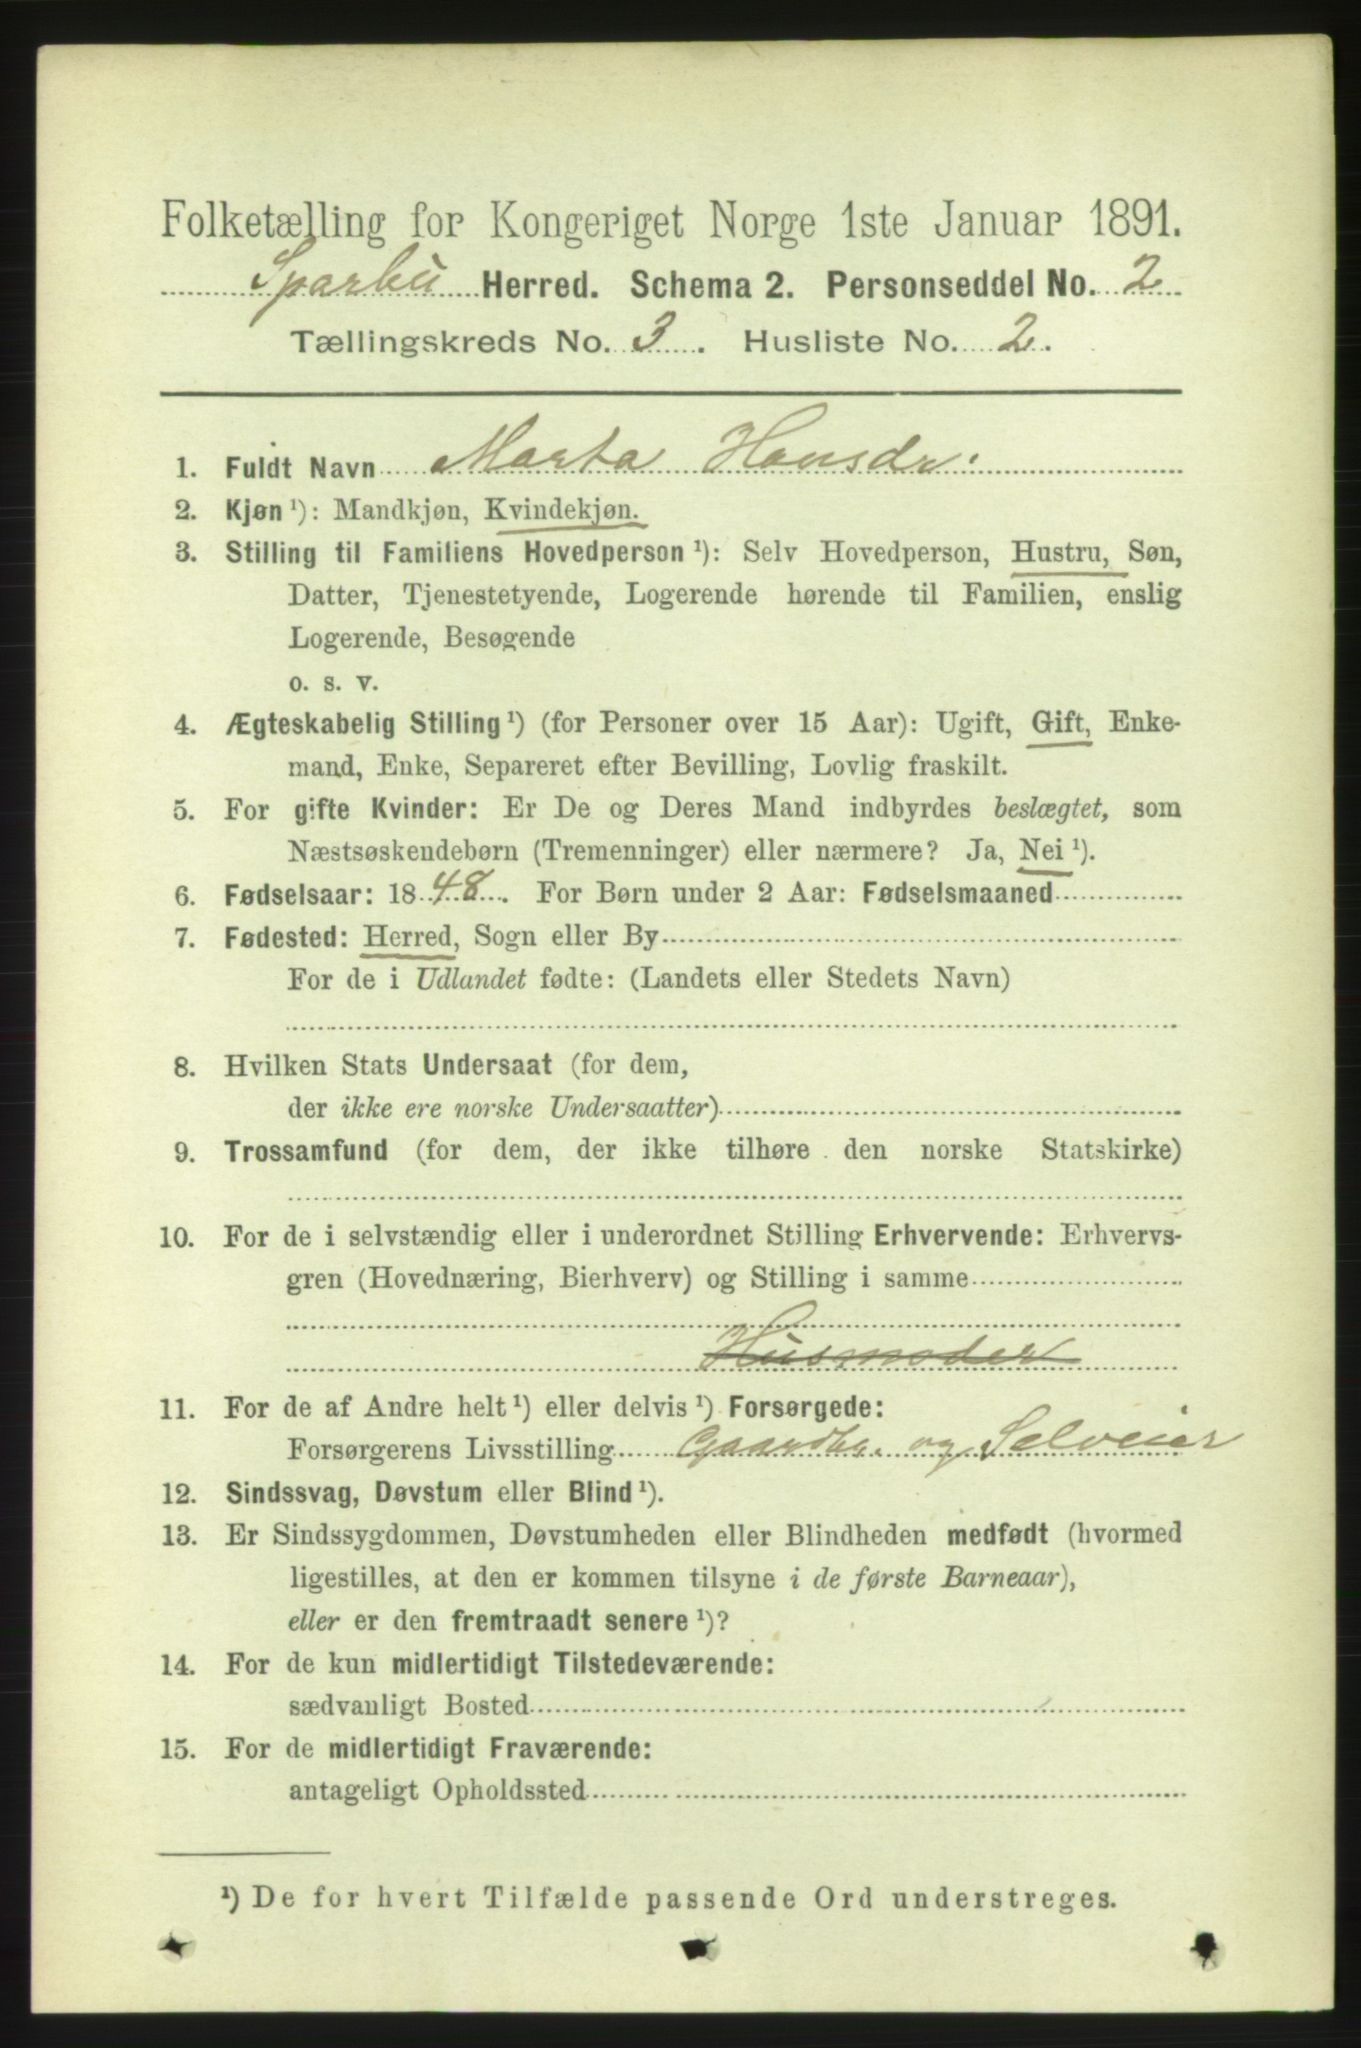 Folketælling for Kongeriget Norge 1ste Januar 1891.
Sparbu Herred. Schema 2. Personseddel No. 2
Tællingskreds No. 3. Husliste No. 2.
1. Fuldt Navn Marta Hansdr.
2. Kjøn ¹): Mandkjøn, Kvindekjøn.
3. Stilling til Familiens Hovedperson ¹): Selv Hovedperson, Hustru, Søn,
Datter, Tjenestetyende, Logerende hørende til Familien, enslig
Logerende, Besøgende
o. s. v.
4. Ægteskabelig Stilling ¹) (for Personer over 15 Aar): Ugift, Gift, Enke-
mand, Enke, Separeret efter Bevilling, Lovlig fraskilt.
5. For gifte Kvinder: Er De og Deres Mand indbyrdes beslægtet, som
Næstsøskendebørn (Tremenninger) eller nærmere? Ja, Nei ¹).
6. Fødselsaar: 1848. For Børn under 2 Aar: Fødselsmaaned
7. Fødested: Herred, Sogn eller By
For de i Udlandet fødte: (Landets eller Stedets Navn)
8. Hvilken Stats Undersaat (for dem,
der ikke ere norske Undersaatter)
9. Trossamfund (for dem, der ikke tilhøre den norske Statskirke)
10. For de i selvstændig eller i underordnet Stilling Erhvervende: Erhvervs-
gren (Hovednæring, Bierhverv) og Stilling i samme
Husmoder
11. For de af Andre helt ¹) eller delvis ¹) Forsørgede:
Forsørgerens Livsstilling Gaardbr. og Selveier
12. Sindssvag, Døvstum eller Blind ¹).
13. Er Sindssygdommen, Døvstumheden eller Blindheden medfødt (hvormed
ligestilles, at den er kommen tilsyne i de første Barneaar),
eller er den fremtraadt senere ¹)?
14. For de kun midlertidigt Tilstedeværende:
sædvanligt Bosted
15. For de midlertidigt Fraværende:
antageligt Opholdssted
¹) De for hvert Tilfælde passende Ord understreges.